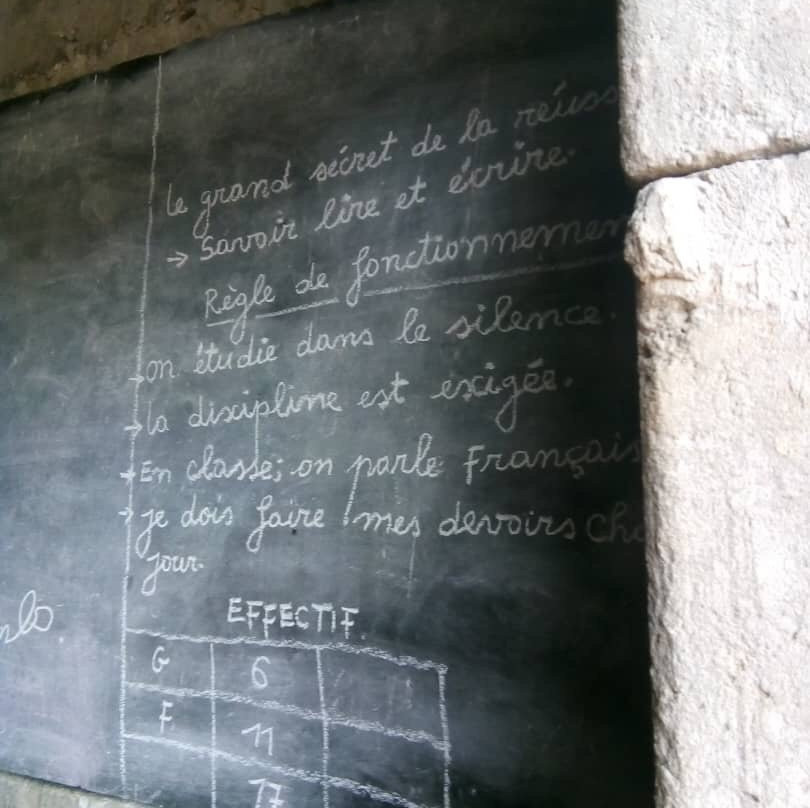 le grand sécret de la réuss
→ Savoir lire et écrire.
Règle de fonctionnemen
→ on étudie dans le silence.
→ la discipline est exigée.
→ En classe; on parle Français
→ je dois faire mes devoirs Cha
jour.
EFFECTIF
G 6
F 11
17